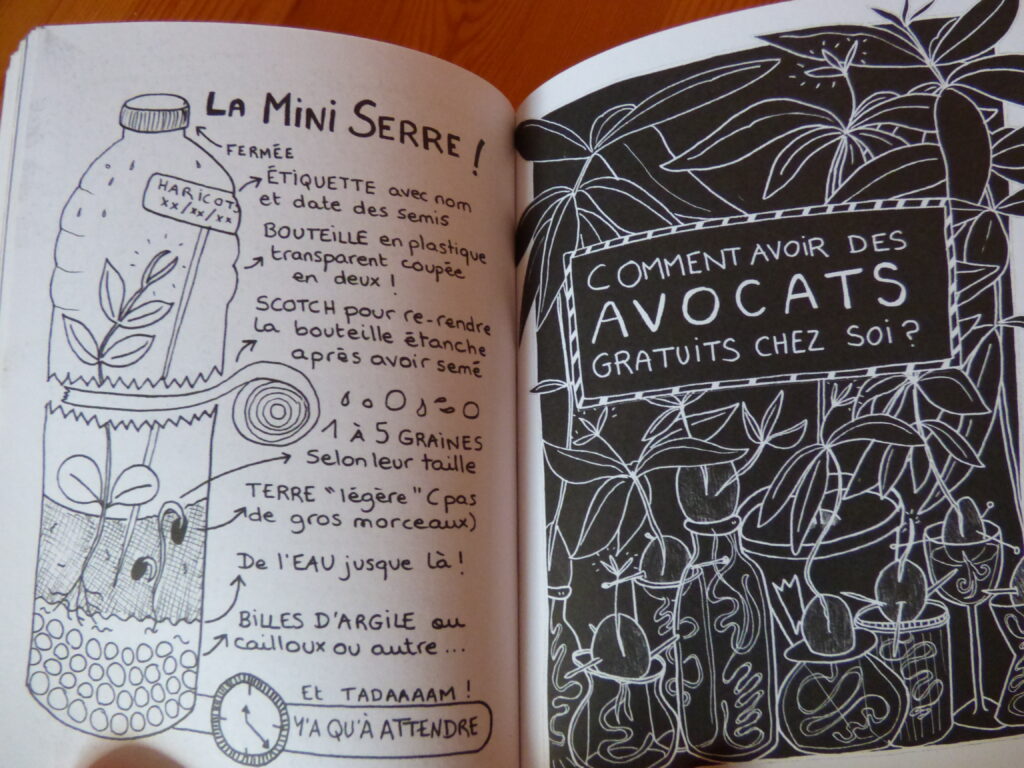 LA MINI SERRE !
FERMÉE
HARICOT
xx/xx/xx
ÉTIQUETTE avec nom
et date des semis
BOUTEILLE en plastique
transparent coupée
en deux !
SCOTCH pour re-rendre
la bouteille étanche
après avoir semé
1 À 5 GRAINES
Selon leur taille
TERRE "légère" (pas
de gros morceaux)
De l'EAU jusque là !
BILLES D'ARGILE ou
cailloux ou autre...
Et TADAAAAM !
Y'A QU'À ATTENDRE
COMMENT AVOIR DES
AVOCATS
GRATUITS CHEZ SOI ?